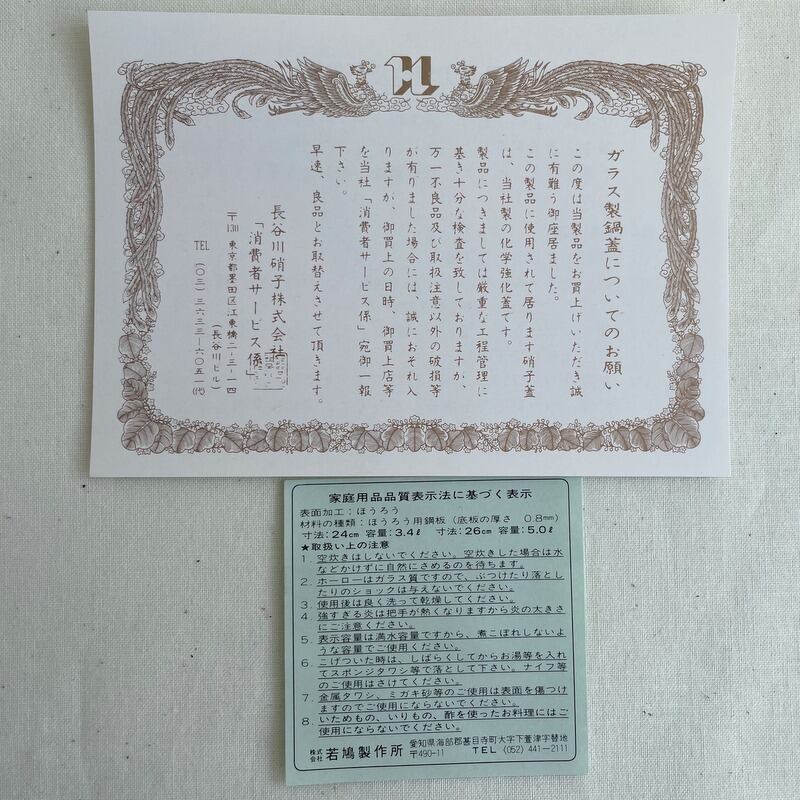 ガラス製鍋蓋についてのお願い
この度は当製品をお買上げいただき誠
に有難う御座居ました。
この製品に使用されて居ります硝子蓋
は、当社製の化学強化蓋です。
製品につきましては厳重な工程管理に
基き十分な検査を致しておりますが、
万一不良品及び取扱注意以外の破損等
が有りました場合には、誠におそれ入
りますが、御買上の日時、御買上店等
を当社「消費者サービス係」宛御一報
下さい。
早速、良品とお取替えさせて頂きます。
長谷川硝子株式会社
「消費者サービス係」
〒130 東京都墨田区江東橋二-三-一四
(長谷川ビル)
TEL (〇三)三六三三-六〇五一(代)
家庭用品品質表示法に基づく表示
表面加工:ほうろう
材料の種類:ほうろう用鋼板(底板の厚さ 0.8mm)
寸法:24cm 容量:3.4ℓ 寸法:26cm 容量:5.0ℓ
★取扱い上の注意
1. 空炊きはしないでください。空炊きした場合は水
などかけずに自然にさめるのを待ちます。
2. ホーローはガラス質ですので、ぶつけたり落とし
たりのショックは与えないでください。
3. 使用後は良く洗って乾燥してください。
4. 強すぎる炎は把手が熱くなりますから炎の大きさ
にご注意ください。
5. 表示容量は満水容量ですから、煮こぼれしないよ
うな容量でご使用ください。
6. こげついた時は、しばらくしてからお湯等を入れ
てスポンジタワシ等で落として下さい。ナイフ等
のご使用はさけてください。
7. 金属タワシ、ミガキ砂等のご使用は表面を傷つけ
ますのでご使用にならないでください。
8. いためもの、いりもの、酢を使ったお料理にはご
使用にならないでください。
株式会社 若鳩製作所 愛知県海部郡甚目寺町大字下萱津字替地
〒490-11 TEL (052) 441-2111